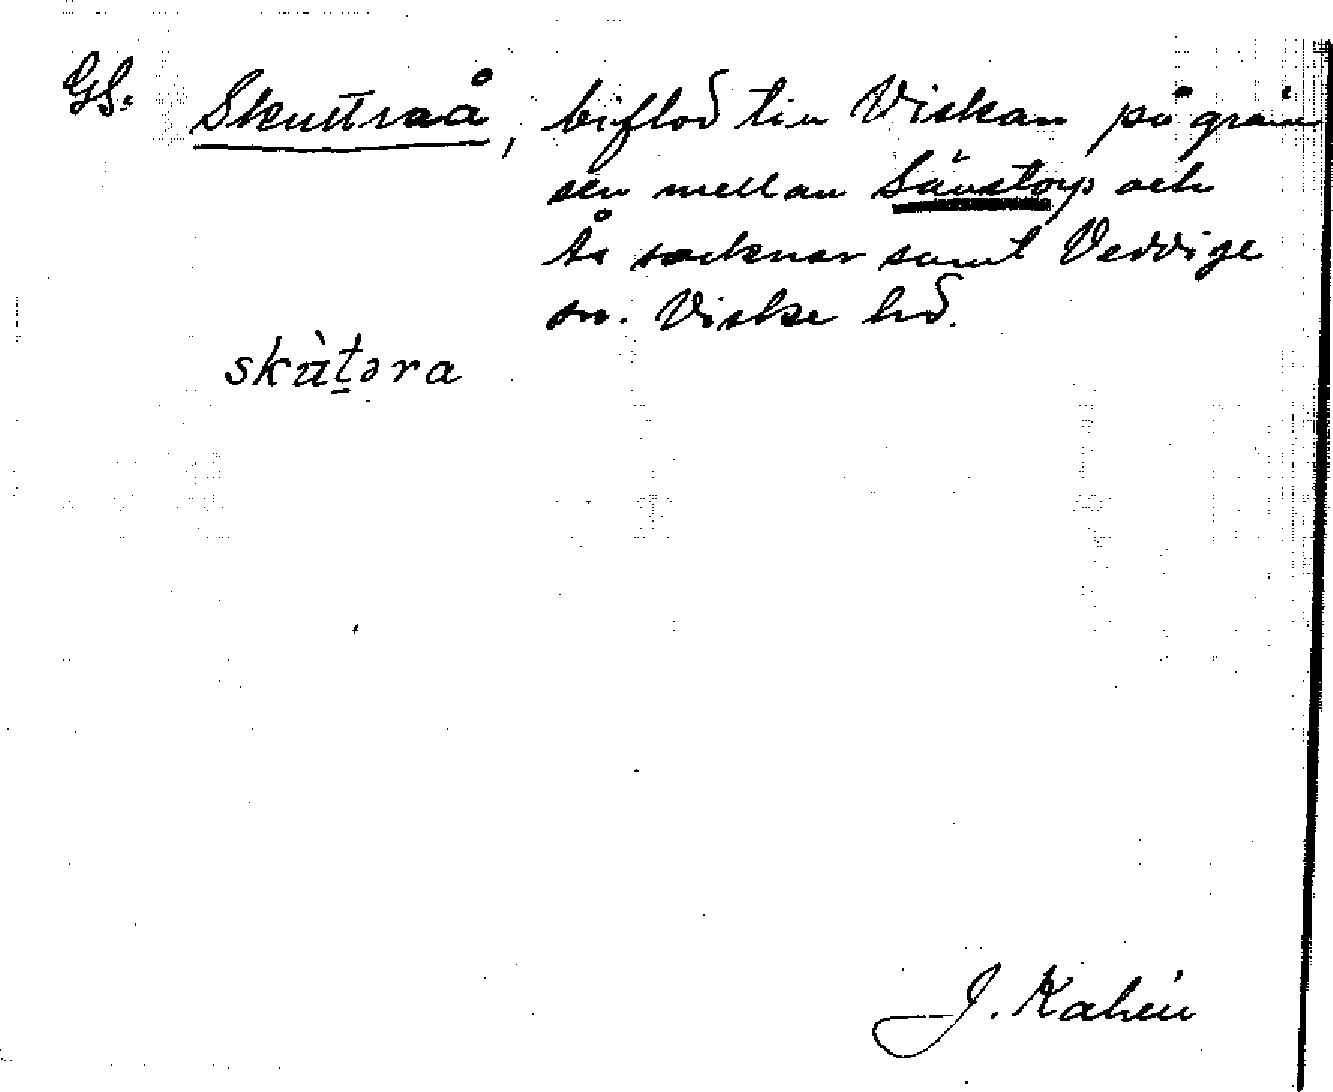 GS. Skuttraå, biflod till Viskan på grän
sen mellan Sävstorp och
Ås socknar samt Veddige
sn. Viske hd.
skùtəra
J. Kalén